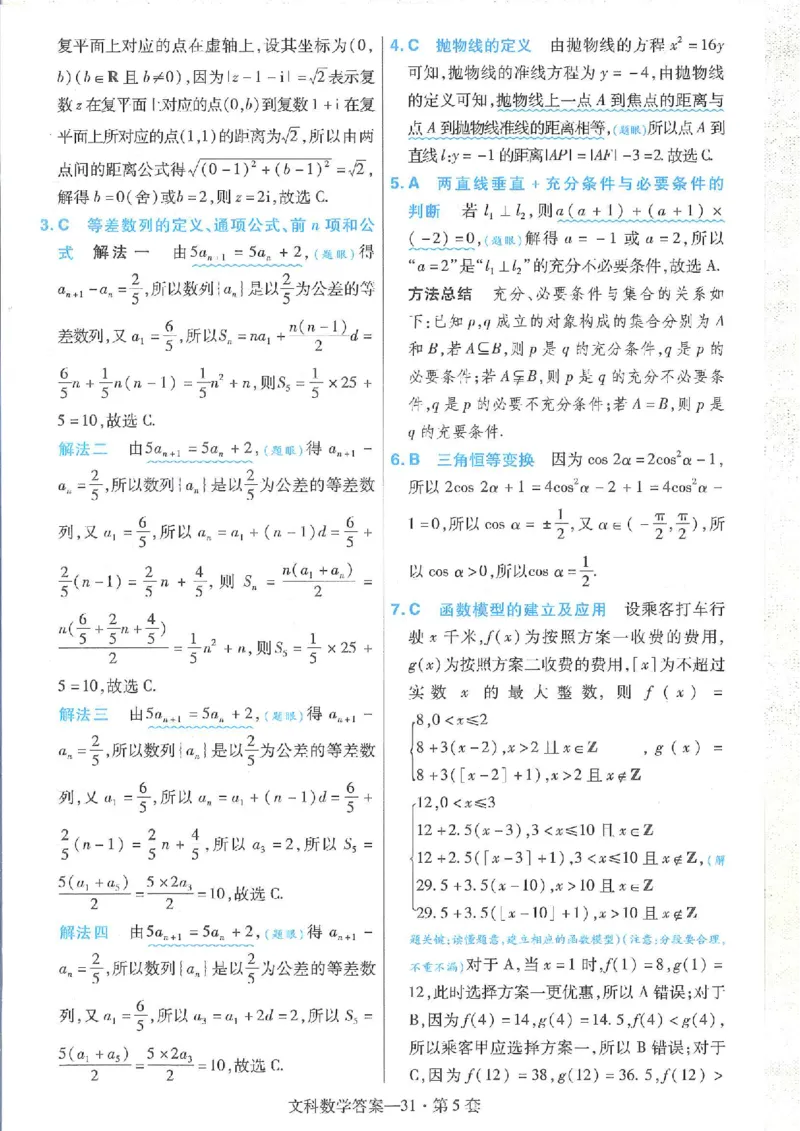 复平面上对应的点在虚轴上,设其坐标为(0,
b)(b∈R且b≠0),因为|z-1-i|=√2表示复
数z在复平面上对应的点(0,b)到复数1+i在复
平面上所对应的点(1,1)的距离为√2,所以由两
点间的距离公式得√((0-1)²+(b-1)²)=√2,
解得b=0(舍)或b=2,则z=2i,故选C.
3.C 等差数列的定义、通项公式、前n项和公
式 解法一 由5aₙ₊₁=5aₙ+2,(题眼)得
aₙ₊₁-aₙ=2/5,所以数列{aₙ}是以2/5为公差的等
差数列,又a₁=6/5,所以Sₙ=na₁+n(n-1)/2 d=
6/5n+1/5n(n-1)=1/5n²+n,则S₅=1/5×25+
5=10,故选C.
解法二 由5aₙ₊₁=5aₙ+2,(题眼)得aₙ₊₁-
aₙ=2/5,所以数列{aₙ}是以2/5为公差的等差数
列,又a₁=6/5,所以aₙ=a₁+(n-1)d=6/5+
2/5(n-1)=2/5n+4/5,则Sₙ=n(a₁+aₙ)/2=
n(6/5+2/5n+4/5)/2=1/5n²+n,则S₅=1/5×25+
5=10,故选C.
解法三 由5aₙ₊₁=5aₙ+2,(题眼)得aₙ₊₁-
aₙ=2/5,所以数列{aₙ}是以2/5为公差的等差数
列,又a₁=6/5,所以aₙ=a₁+(n-1)d=6/5+
2/5(n-1)=2/5n+4/5,所以a₃=2,所以S₅=
5(a₁+a₅)/2=5×2a₃/2=10,故选C.
解法四 由5aₙ₊₁=5aₙ+2,(题眼)得aₙ₊₁-
aₙ=2/5,所以数列{aₙ}是以2/5为公差的等差数
列,又a₁=6/5,所以a₃=a₁+2d=2,所以S₅=
5(a₁+a₅)/2=5×2a₃/2=10,故选C.
4.C 抛物线的定义 由抛物线的方程x²=16y
可知,抛物线的准线方程为y=-4,由抛物线
的定义可知,抛物线上一点A到焦点的距离与
点A到抛物线准线的距离相等,(题眼)所以点A到
直线l:y=-1的距离|AP|=|AF|-3=2.故选C.
5.A 两直线垂直+充分条件与必要条件的
判断 若l₁⊥l₂,则a(a+1)+(a+1)×
(-2)=0,(题眼)解得a=-1或a=2,所以
“a=2”是“l₁⊥l₂”的充分不必要条件,故选A.
方法总结 充分、必要条件与集合的关系如
下:已知p,q成立的对象构成的集合分别为A
和B,若A⊆B,则p是q的充分条件,q是p的
必要条件;若A⫋B,则p是q的充分不必要条
件,q是p的必要不充分条件;若A=B,则p是
q的充要条件.
6.B 三角恒等变换 因为cos 2α=2cos²α-1,
所以2cos 2α+1=4cos²α-2+1=4cos²α-
1=0,所以cos α=±1/2,又α∈(-π/2,π/2),所
以cos α>0,所以cos α=1/2.
7.C 函数模型的建立及应用 设乘客打车行
驶x千米,f(x)为按照方案一收费的费用,
g(x)为按照方案二收费的费用,[x]为不超过
实数x的最大整数,则f(x)=
{8,0<x≤2
8+3(x-2),x>2且x∈Z ,g(x)=
8+3([x-2]+1),x>2且x∉Z
{12,0<x≤3
12+2.5(x-3),3<x≤10且x∈Z
12+2.5([x-3]+1),3<x≤10且x∉Z,(解
29.5+3.5(x-10),x>10且x∈Z
29.5+3.5([x-10]+1),x>10且x∉Z
题关键:读懂题意,建立相应的函数模型)(注意:分段要合理,
不重不漏)对于A,当x=1时,f(1)=8,g(1)=
12,此时选择方案一更优惠,所以A错误;对于
B,因为f(4)=14,g(4)=14.5,f(4)<g(4),
所以乘客甲应选择方案一,所以B错误;对于
C,因为f(12)=38,g(12)=36.5,f(12)>
文科数学答案—31·第5套